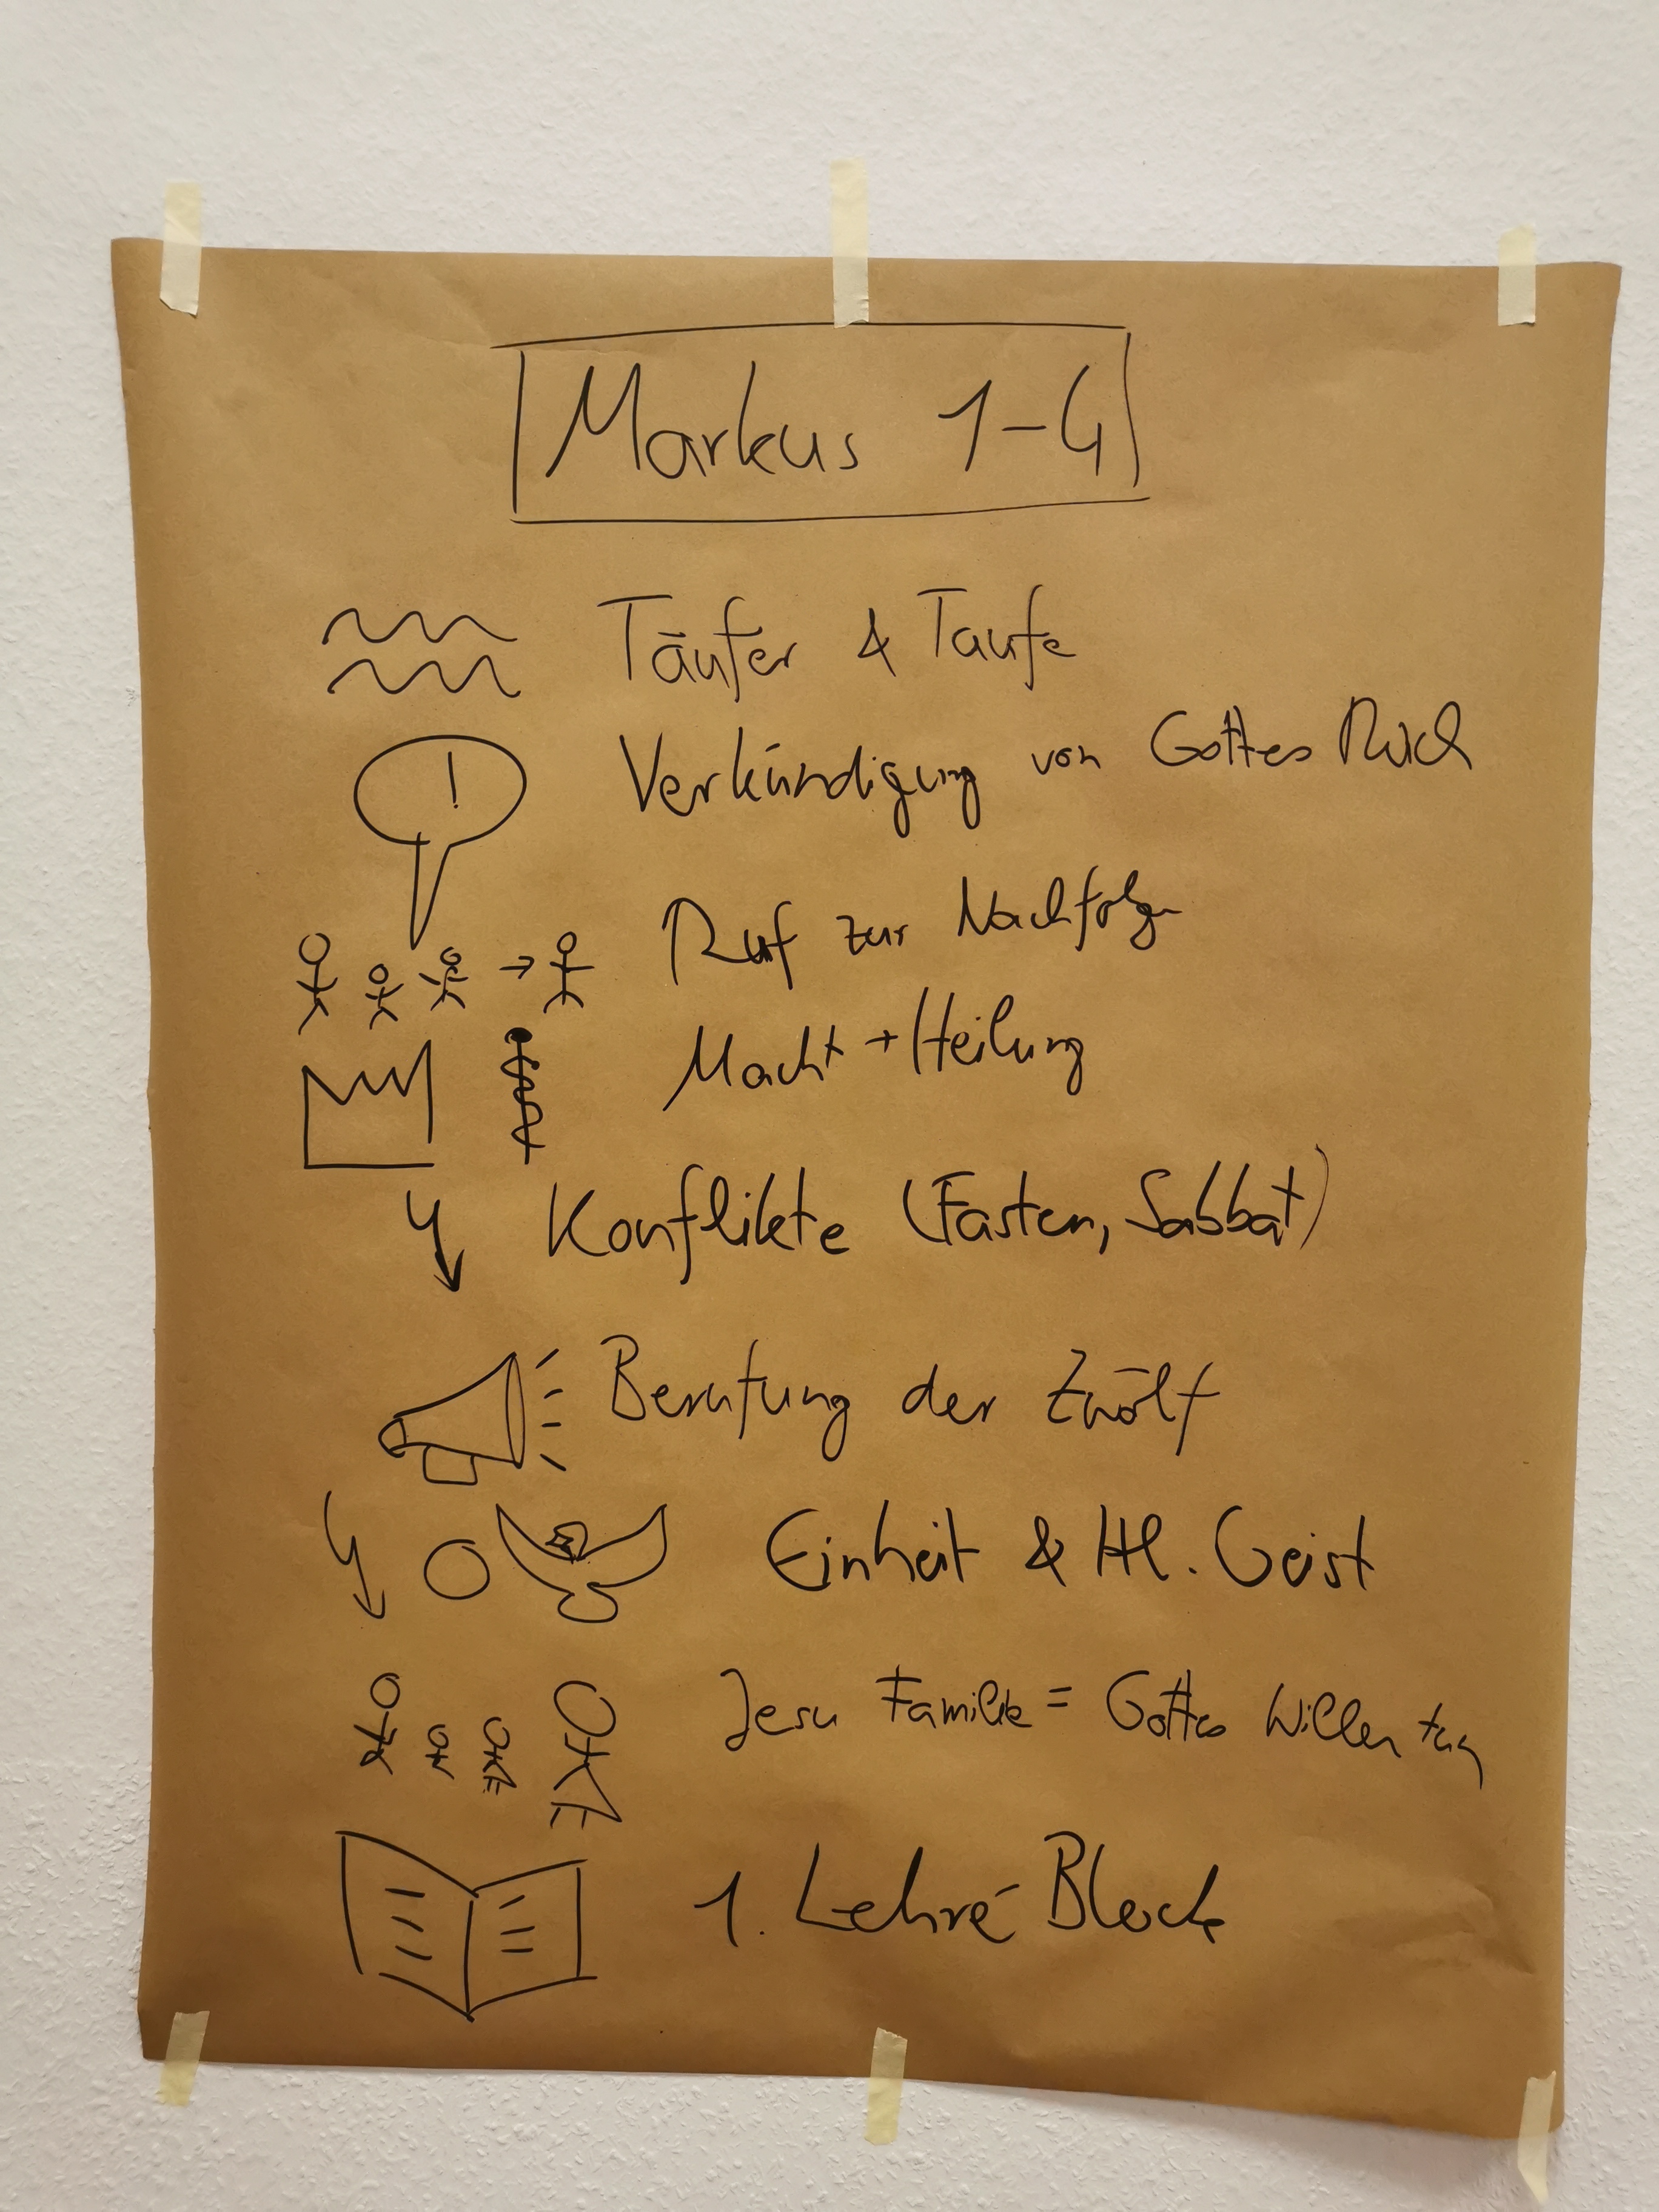 Markus 1-4
Täufer & Taufe
!
Verkündigung von Gottes Reich
Ruf zur Nachfolge
Macht + Heilung
Konflikte (Fasten, Sabbat)
Berufung der Zwölf
Einheit & Hl. Geist
Jesu Familie = Gottes Willen tun
1. Lehre-Block